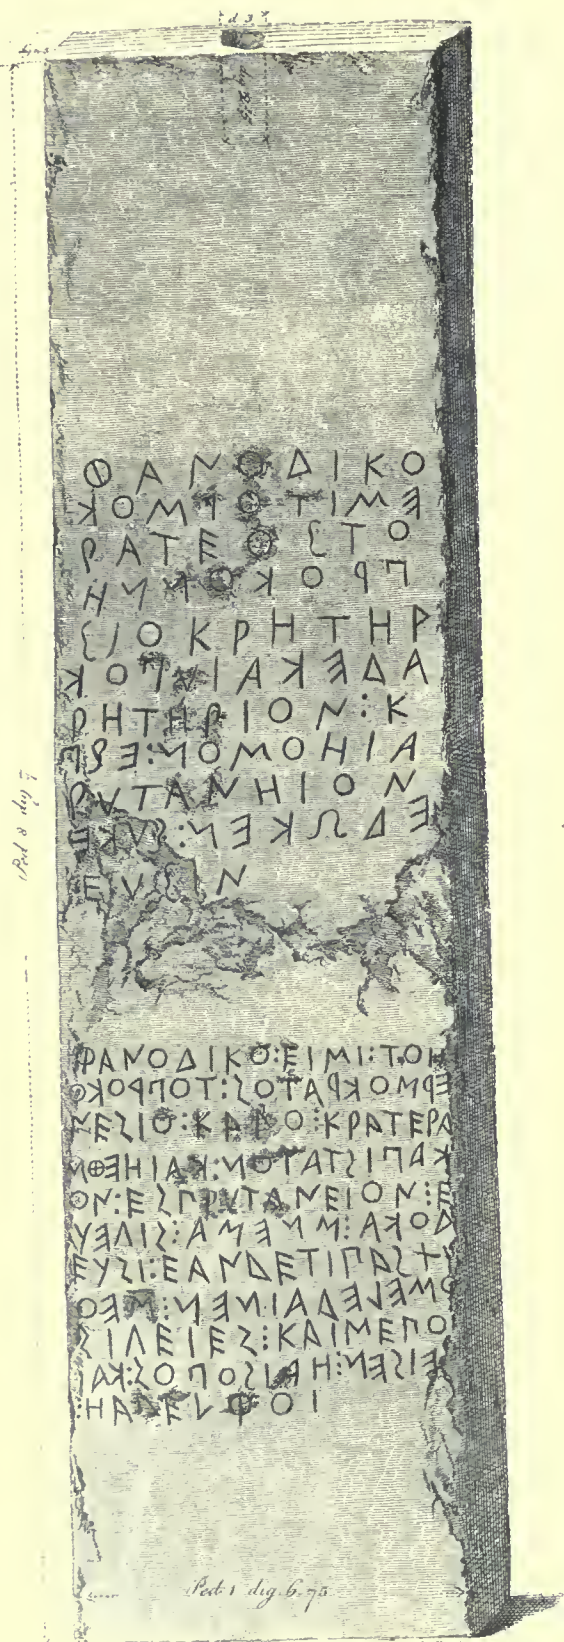 ΦΑΝΟΔΙΚΟ
ΕΜΙΤΟΡΜΟΚ
ΡΑΤΕΟΣΤΟ
ΠΡΟΚΟΝΝΗ
ΣΙΟΚΡΗΤΗΡ
ΑΔΕΚΑΙΥΠΟΚ
ΡΗΤΗΡΙΟΝ:Κ
ΑΙΗΟΜΟΝ:ΕΣΠ
ΡΥΤΑΝΗΙΟΝ
ΕΔΩΚΕΝ:ΣΥΚΕ
ΕΥΣ Ν
ΦΑΝΟΔΙΚΟ:ΕΙΜΙ:ΤΟΗ
ΕΡΜΟΚΡΑΤΟΣ:ΤΟΠΡΟΚΟ
ΝΕΣΙΟ:ΚΑΓΟ:ΚΡΑΤΕΡΑ
ΚΑΠΙΣΤΑΤΟΝ:ΚΑΙΗΕΘΜ
ΟΝ:ΕΣΠΡΥΤΑΝΕΙΟΝ:Ε
ΔΟΚΑ:ΜΝΕΜΑ:ΣΙΓΕΥ
ΕΥΣΙ:ΕΑΝΔΕΤΙΠΑΣΧ
ΟΜΕΛΕΔΑΙΝΕΝ:ΜΕΟ
ΣΙΓΕΙΕΣ:ΚΑΙΜΕΠΟ
ΕΙΣΕΝ:ΗΑΙΣΟΠΟΣ:ΚΑΙ
:ΗΑΔΕΛΦΟΙ
Ped. 1 dig. 6. 75
Ped 8 dig 7